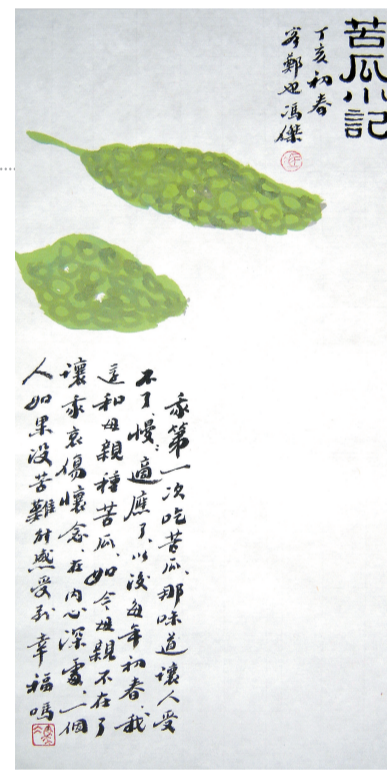 苦瓜小記
丁亥初春
客鄭也馮傑
我第一次吃苦瓜、那味道讓人受
不了、慢〻適應了、以後每年初春、我
和母親種苦瓜、如今母親不在了
讓我哀傷懷念、在內心深處、一個
人如果没苦難感受到幸福嗎